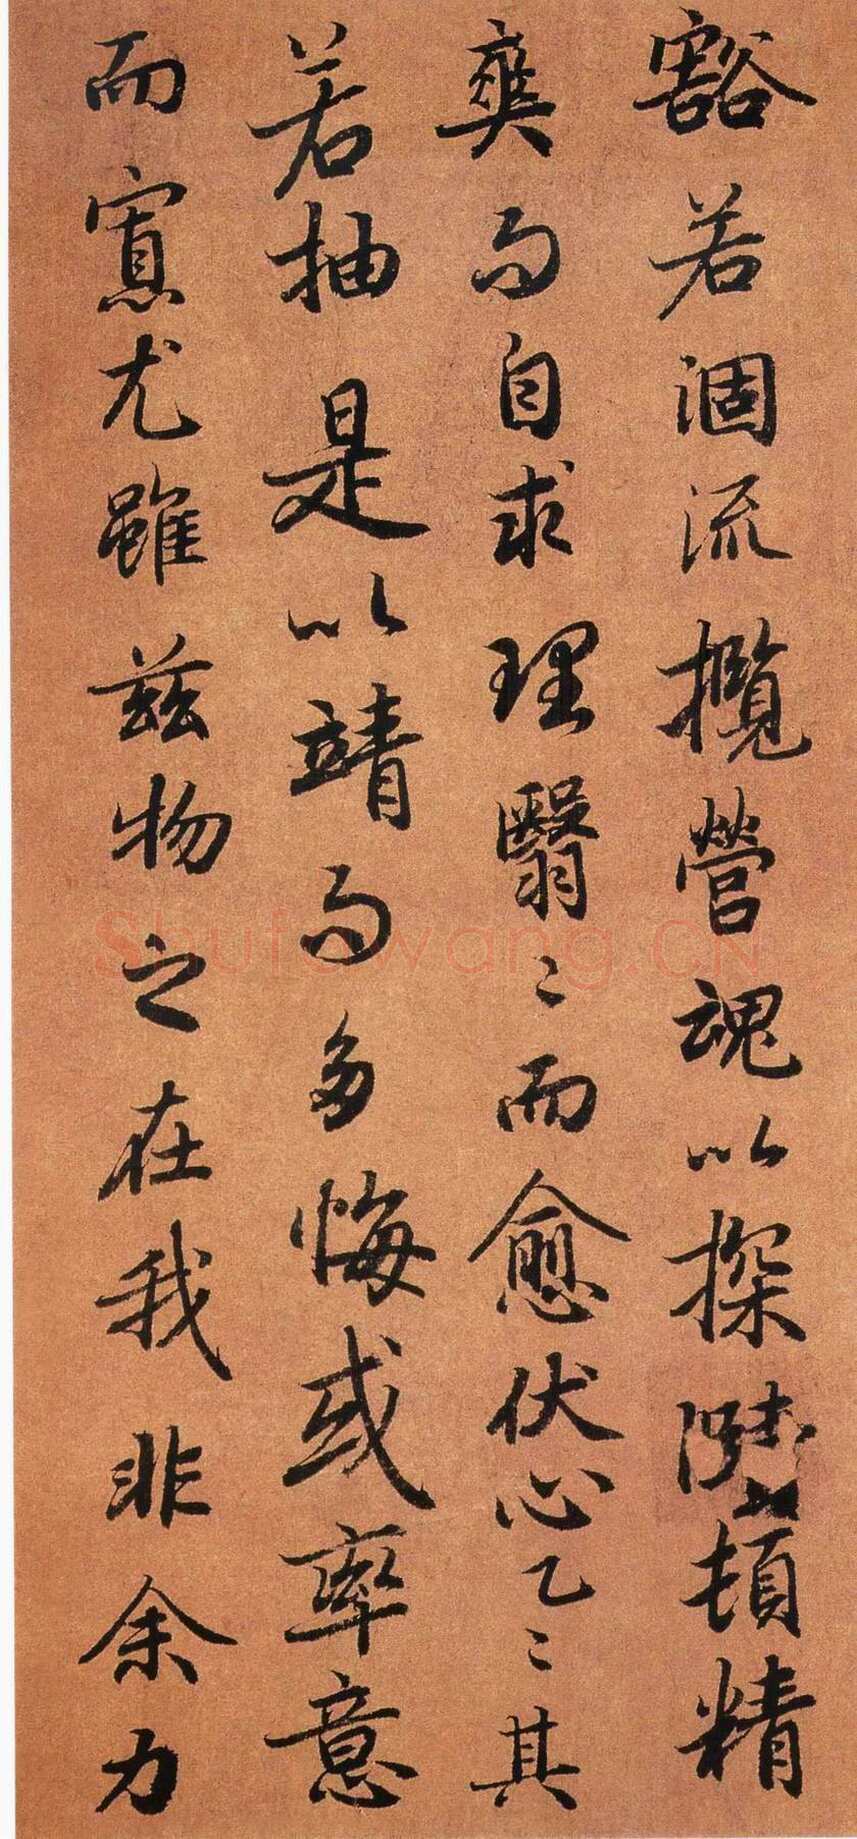 豁若涸流攬營魂以探頓精
爽而自求理翳〻而愈伏心乙〻其
若抽是以靖而多悔或率意
而寡尤雖茲物之在我非余力
Shufawang.CN